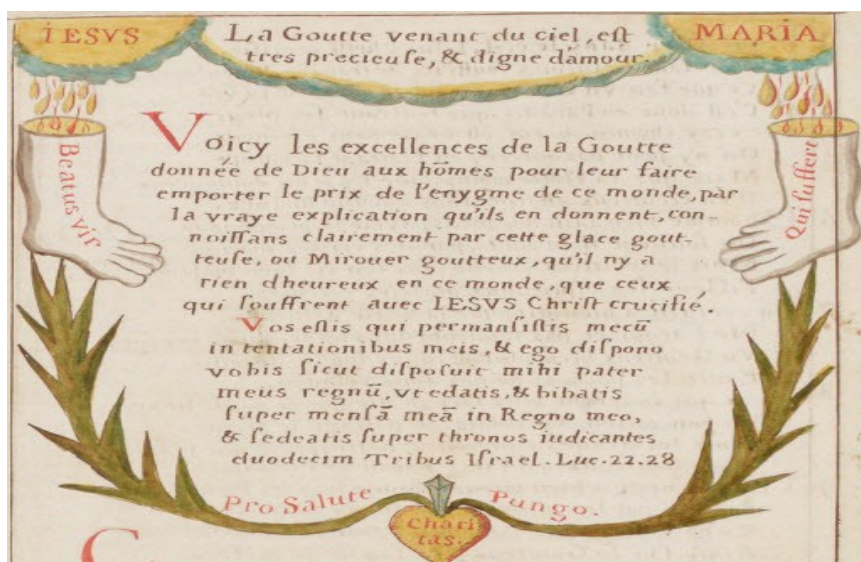 IESVS
La Goutte venant du ciel, eſt
tres precieuſe, & digne d'amour.
MARIA
Beatus vir
Qui ſuffert
Voicy les excellences de la Goutte
donnée de Dieu aux hōmes pour leur faire
emporter le prix de l'enygme de ce monde, par
la vraye explication qu'ils en donnent, con-
noiſſans clairement par cette glace gout-
teuſe, ou Mirouer goutteux, qu'il ny a
rien d'heureux en ce monde, que ceux
qui ſouffrent auec IESVS Chriſt crucifié.
Vos eſtis qui permanſiſtis mecū
in tentationibus meis, & ego diſpono
vobis ſicut diſpoſuit mihi pater
meus regnū, vt edatis, & bibatis
ſuper menſā meā in Regno meo,
& ſedeatis ſuper thronos iudicantes
duodecim Tribus Iſrael. Luc. 22. 28
Pro Salute Pungo.
Chari
tas.